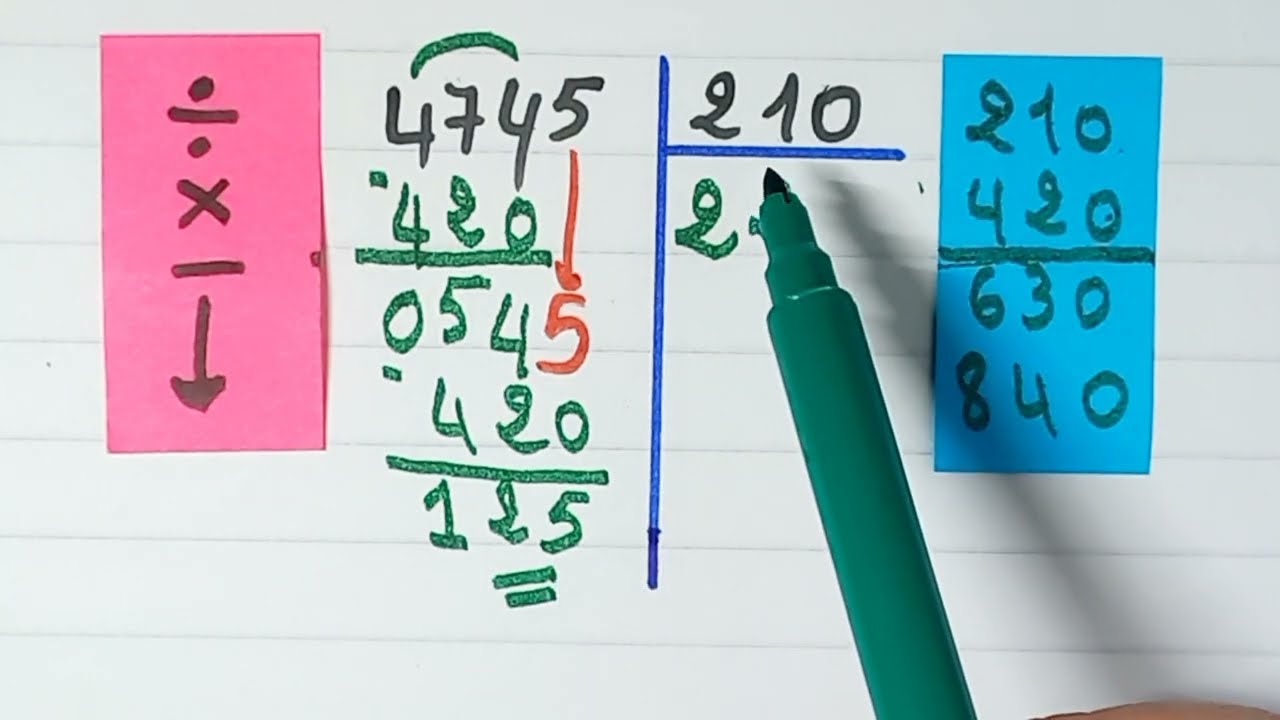 ÷
×
−
↓
4745
- 420
0545
- 420
125
210
2
210
420
630
840